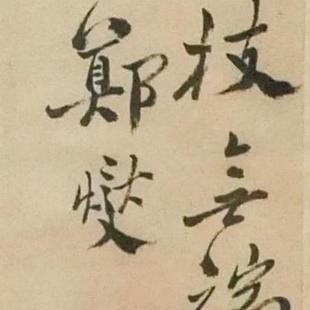 枝無端
鄭燮